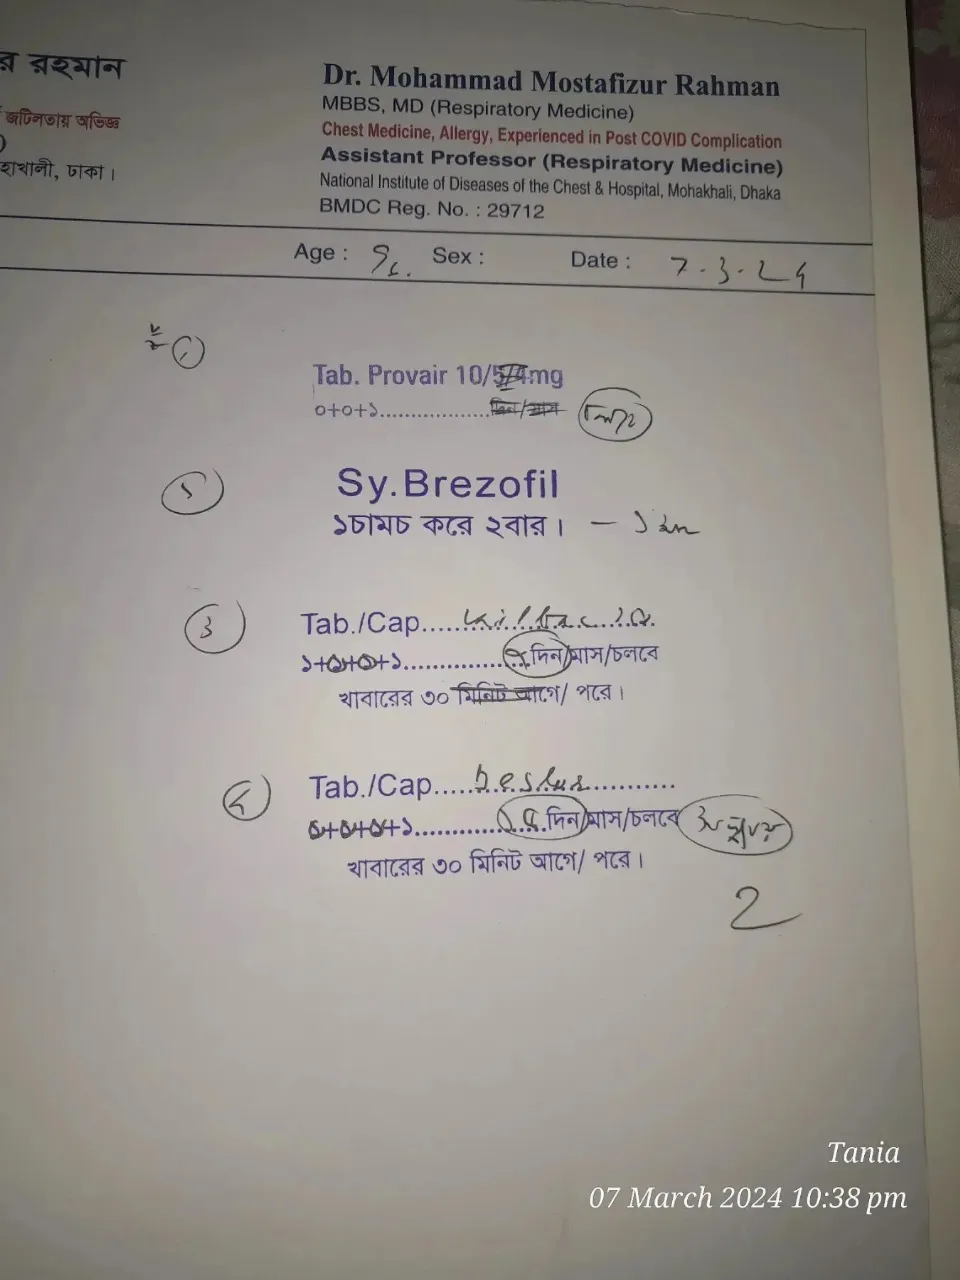 র রহমান
জটিলতায় অভিজ্ঞ
)
হাখালী, ঢাকা।
Dr. Mohammad Mostafizur Rahman
MBBS, MD (Respiratory Medicine)
Chest Medicine, Allergy, Experienced in Post COVID Complication
Assistant Professor (Respiratory Medicine)
National Institute of Diseases of the Chest & Hospital, Mohakhali, Dhaka
BMDC Reg. No. : 29712
Age : Sex : Date : 7.3.24
Tab. Provair 10/5/4mg
০+০+১..................দিন/মাস
Sy.Brezofil
১চামচ করে ২বার। —
৩ Tab./Cap.....
১+০+০+১...............দিন/মাস/চলবে
খাবারের ৩০ মিনিট আগে/ পরে।
৪ Tab./Cap.....
০+০+০+১...............দিন/মাস/চলবে
খাবারের ৩০ মিনিট আগে/ পরে।
2
Tania
07 March 2024 10:38 pm